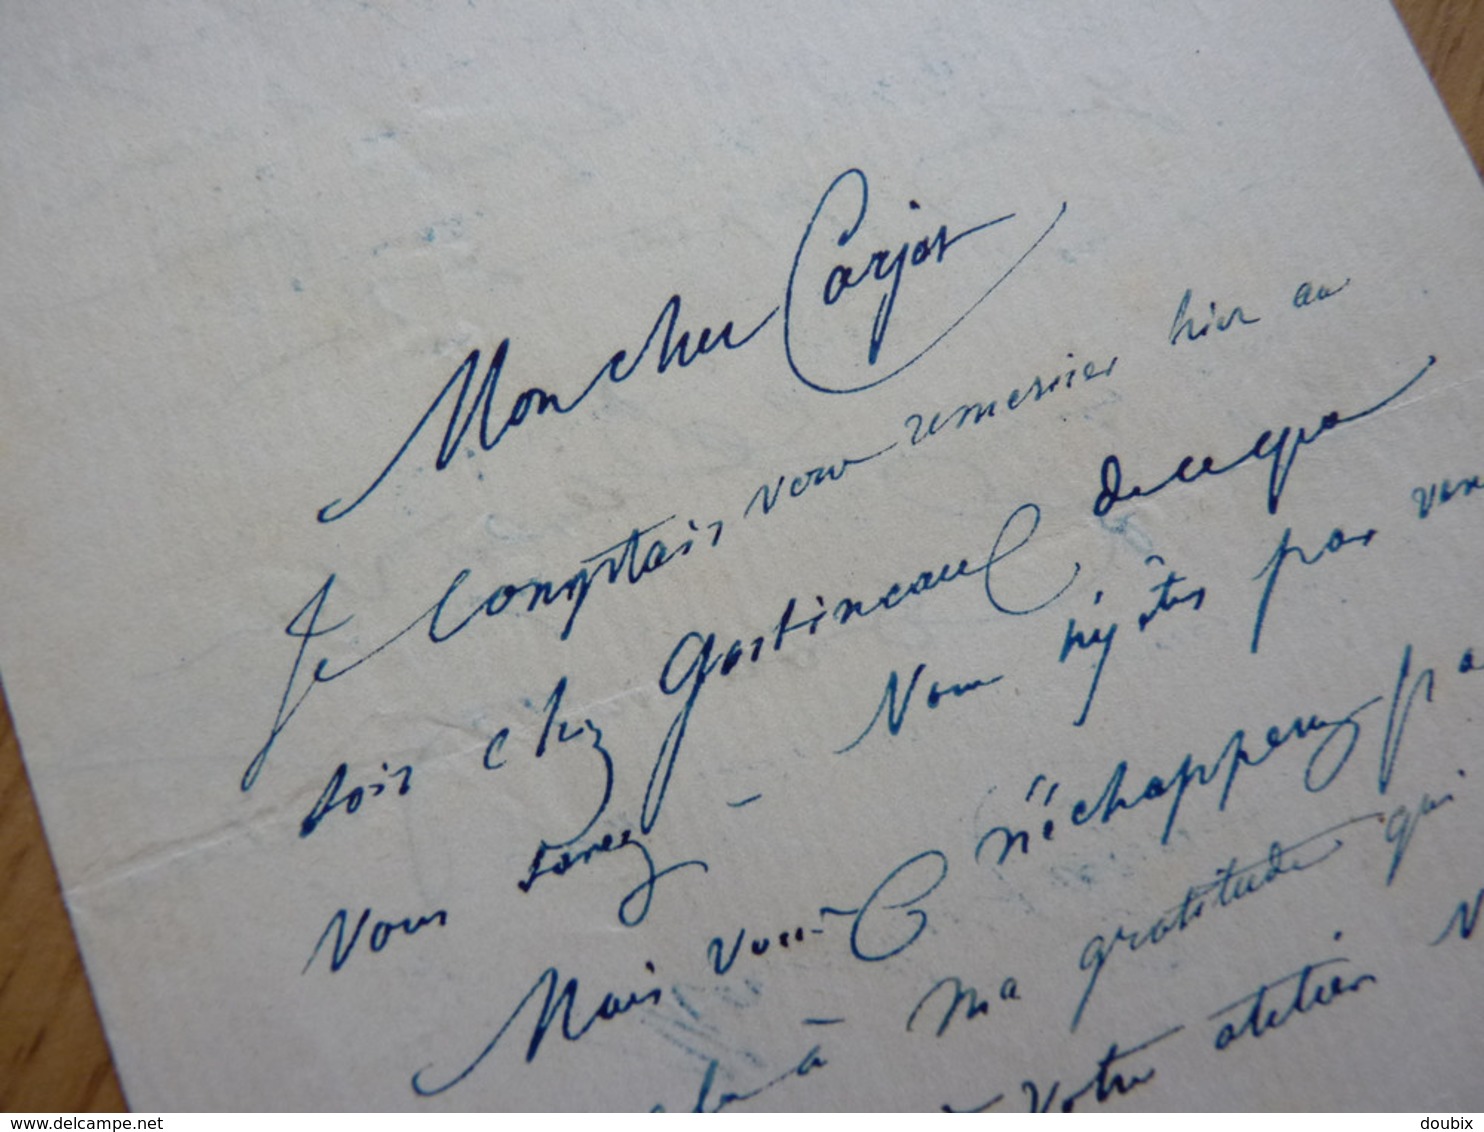 Mon cher Carjat
Je comptais vous remercier hier au
soir chez Gastineau de ce que
vous savez - Vous n'y êtes pas
Mais vous n'échapperez pas
à ma gratitude qui
à votre atelier
doubix